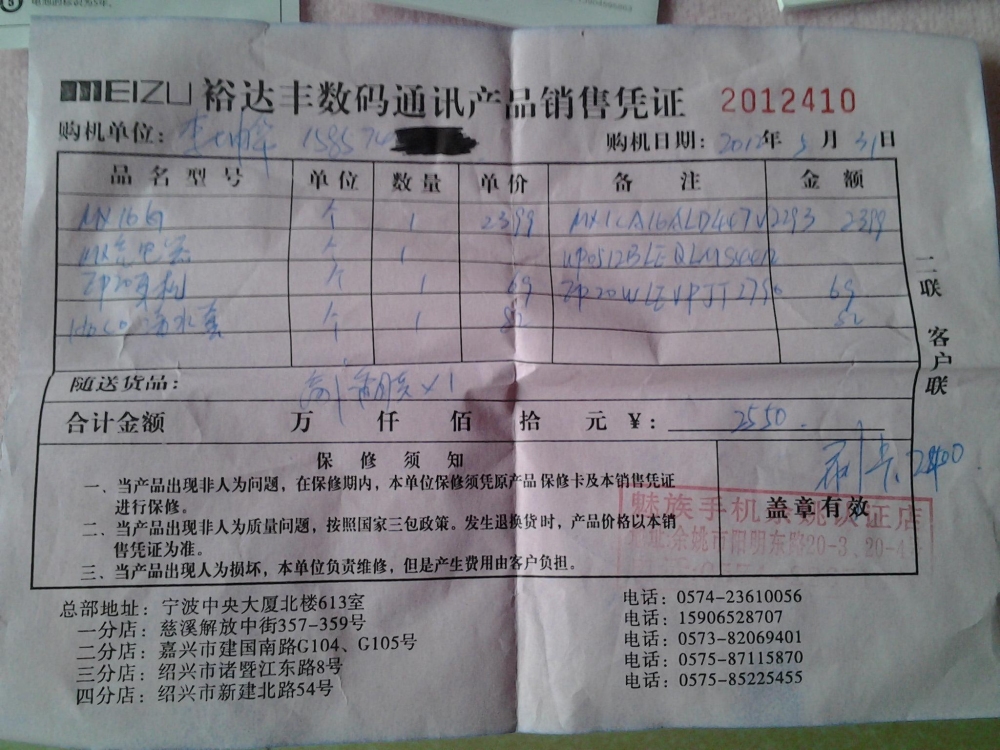 MEIZU 裕达丰数码通讯产品销售凭证 2012410
购机单位: 158574 购机日期: 2012年 5月 31日
品名型号 单位 数量 单价 备注 金额
MX16G 个 1 2399 2399
个 1
EP20耳机 个 1 69 69
个 1 82 82
随送货品: x1
合计金额 万 仟 佰 拾 元 ¥: 2550
刷卡2400
保修须知
一、当产品出现非人为问题,在保修期内,本单位保修须凭原产品保修卡及本销售凭证
进行保修。
二、当产品出现非人为质量问题,按照国家三包政策。发生退换货时,产品价格以本销
售凭证为准。
三、当产品出现人为损坏,本单位负责维修,但是产生费用由客户负担。
盖章有效
魅族手机余姚认证店
地址:余姚市阳明东路20-3、20-4
二联 客户联
总部地址: 宁波中央大厦北楼613室 电话: 0574-23610056
一分店: 慈溪解放中街357-359号 电话: 15906528707
二分店: 嘉兴市建国南路G104、G105号 电话: 0573-82069401
三分店: 绍兴市诸暨江东路8号 电话: 0575-87115870
四分店: 绍兴市新建北路54号 电话: 0575-85225455